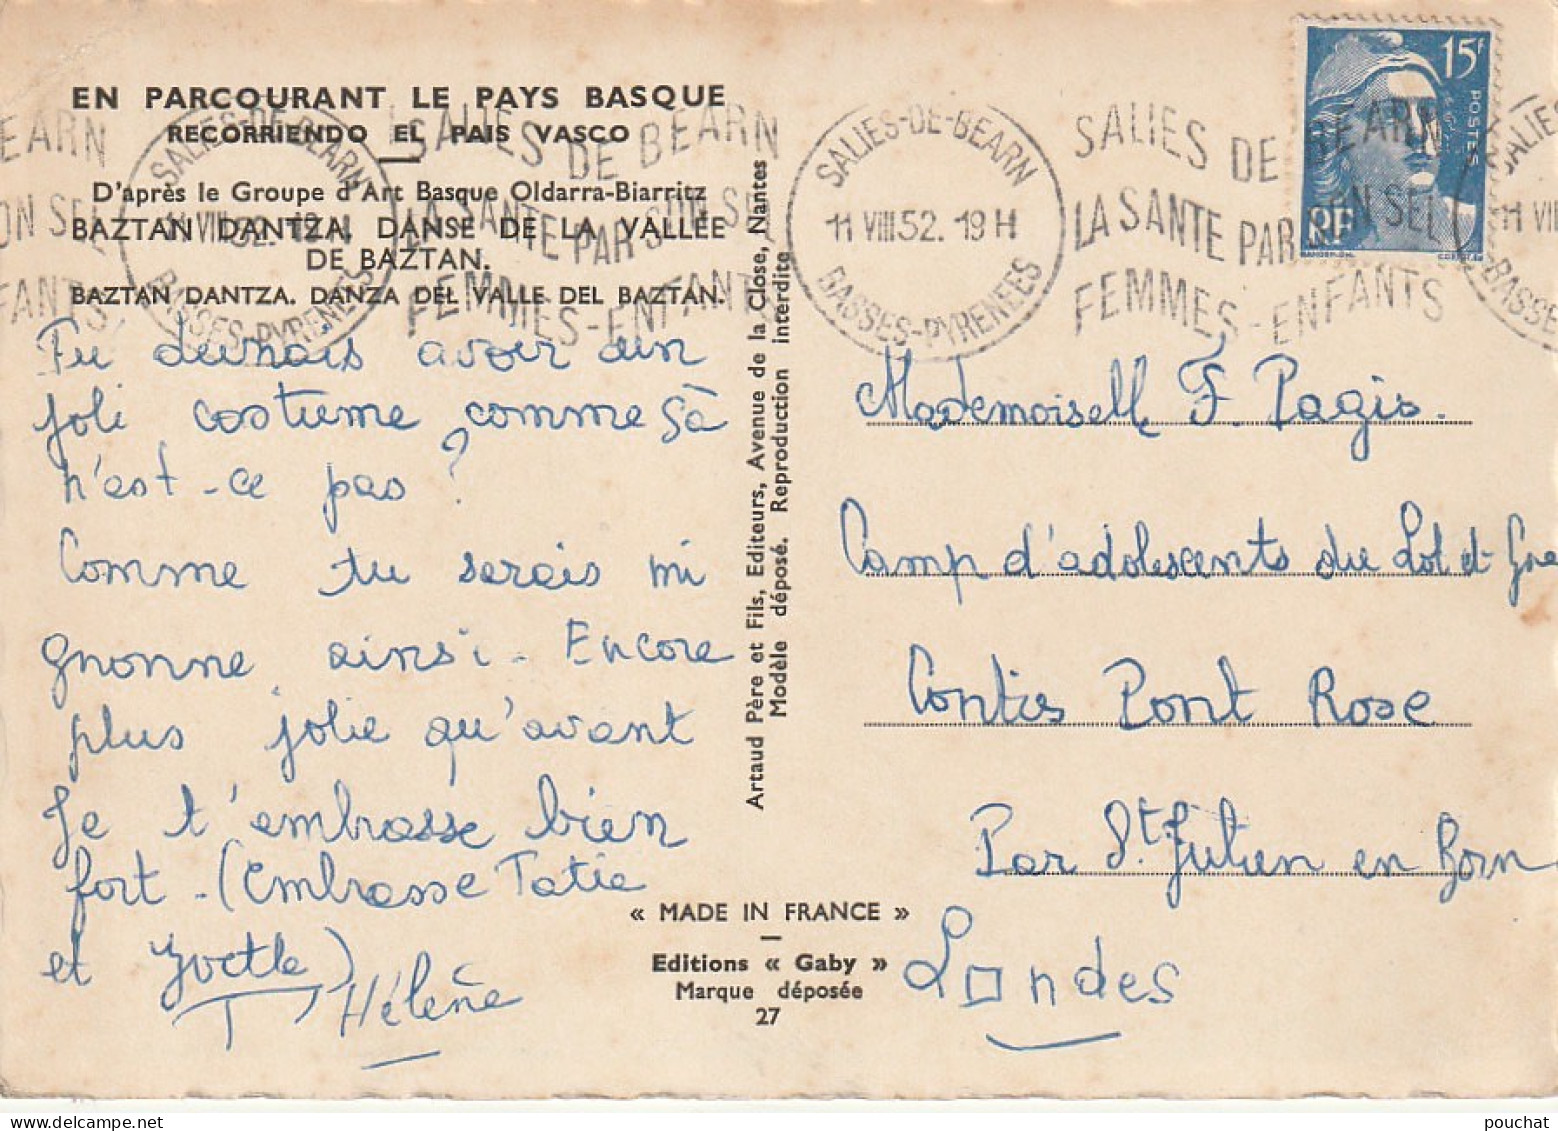 EN PARCOURANT LE PAYS BASQUE
RECORRIENDO EL PAIS VASCO
D'après le Groupe d'Art Basque Oldarra-Biarritz
BAZTAN DANTZA. DANSE DE LA VALLÉE
DE BAZTAN.
BAZTAN DANTZA. DANZA DEL VALLE DEL BAZTAN.
Tu devrais avoir un
joli costume comme sà
n'est-ce pas ?
Comme tu serais mi
gnonne ainsi. Encore
plus jolie qu'avant
Je t'embrasse bien
fort - (Embrasse Tatie
et Yvette)
Hélène
Artaud Père et Fils, Editeurs, Avenue de la Close, Nantes
Modèle déposé. Reproduction interdite
« MADE IN FRANCE »
Editions « Gaby »
Marque déposée
27
SALIES-DE-BEARN
11 VIII 52. 19 H
BASSES-PYRENEES
SALIES DE BEARN
LA SANTE PAR SON SEL
FEMMES-ENFANTS
SALIES-DE-BEARN
11 VIII 52. 19 H
BASSES-PYRENEES
SALIES DE BEARN
LA SANTE PAR SON SEL
FEMMES-ENFANTS
15F
POSTES
RF
Mademoiselle F. Pagis.
Camp d'adolescents du Lot et Gne
Contis Pont Rose
Par St Julien en Born
Landes
pouchat